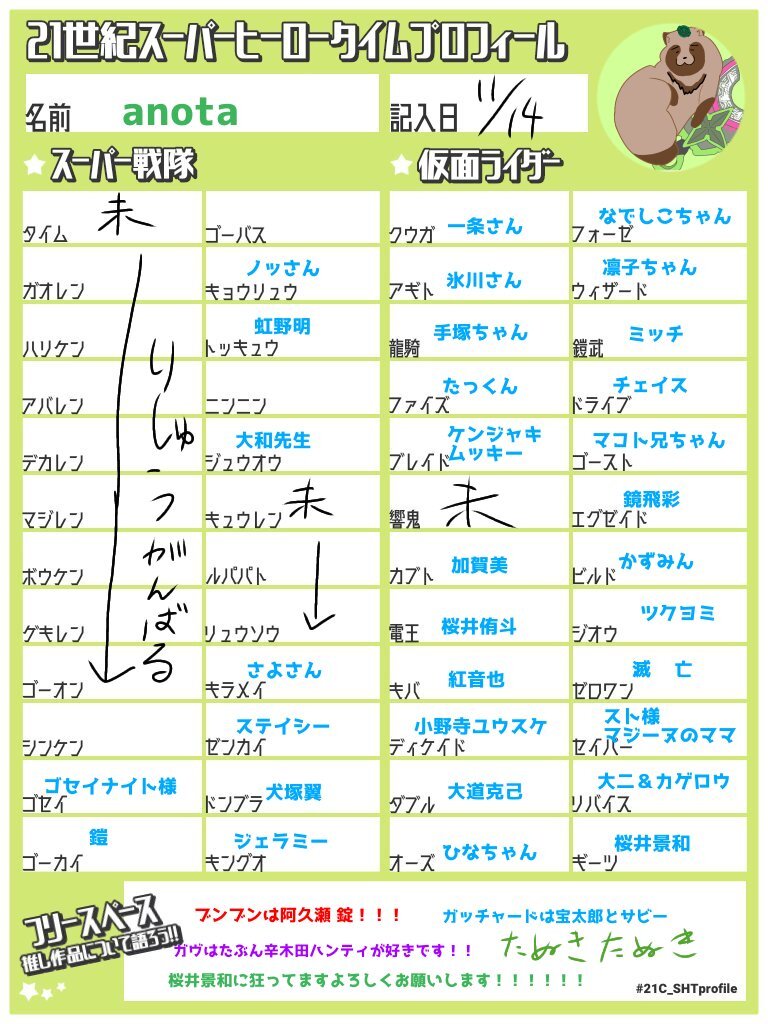 21世紀スーパーヒーロータイムプロフィール
名前 anota
記入日 11/14
スーパー戦隊
タイム 未
ガオレン
ハリケン
アバレン
デカレン
マジレン
ボウケン
ゲキレン
ゴーオン
りしゅうがんばる
シンケン
ゴセイ ゴセイナイト様
ゴーカイ 鎧
ゴーバス
キョウリュウ ノッさん
トッキュウ 虹野明
ニンニン
ジュウオウ 大和先生
キュウレン 未
ルパパト
リュウソウ
キラメイ さよさん
ゼンカイ ステイシー
ドンブラ 犬塚翼
キングオ ジェラミー
仮面ライダー
クウガ 一条さん
アギト 氷川さん
龍騎 手塚ちゃん
ファイズ たっくん
ブレイド ケンジャキ
ムッキー
響鬼 未
カブト 加賀美
電王 桜井侑斗
キバ 紅音也
ディケイド 小野寺ユウスケ
ダブル 大道克己
オーズ ひなちゃん
フォーゼ なでしこちゃん
ウィザード 凛子ちゃん
鎧武 ミッチ
ドライブ チェイス
ゴースト マコト兄ちゃん
エグゼイド 鏡飛彩
ビルド かずみん
ジオウ ツクヨミ
ゼロワン 滅 亡
セイバー スト様
マジーヌのママ
リバイス 大二&カゲロウ
ギーツ 桜井景和
フリースペース
推し作品について語ろう!!
ブンブンは阿久瀬 錠!!!
ガッチャードは宝太郎とサビー
ガヴはたぶん辛木田ハンティが好きです!!
たぬきたぬき
桜井景和に狂ってますよろしくお願いします!!!!!!
#21C_SHTprofile